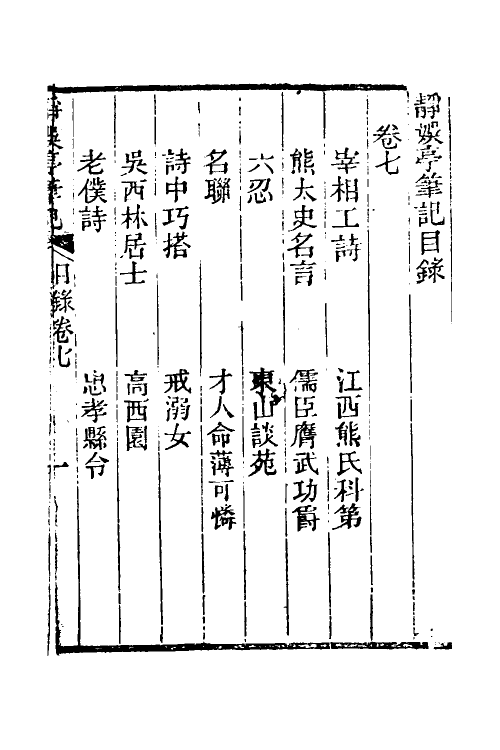 靜娛亭筆記目錄
卷七
宰相工詩　江西熊氏科第
熊太史名言　儒臣膺武功爵
六忍　東山談苑
名聯　才人命薄可憐
詩中巧搭　戒溺女
吳西林居士　高西園
老僕詩　忠孝縣令
靜娛亭筆記　目錄卷七　一